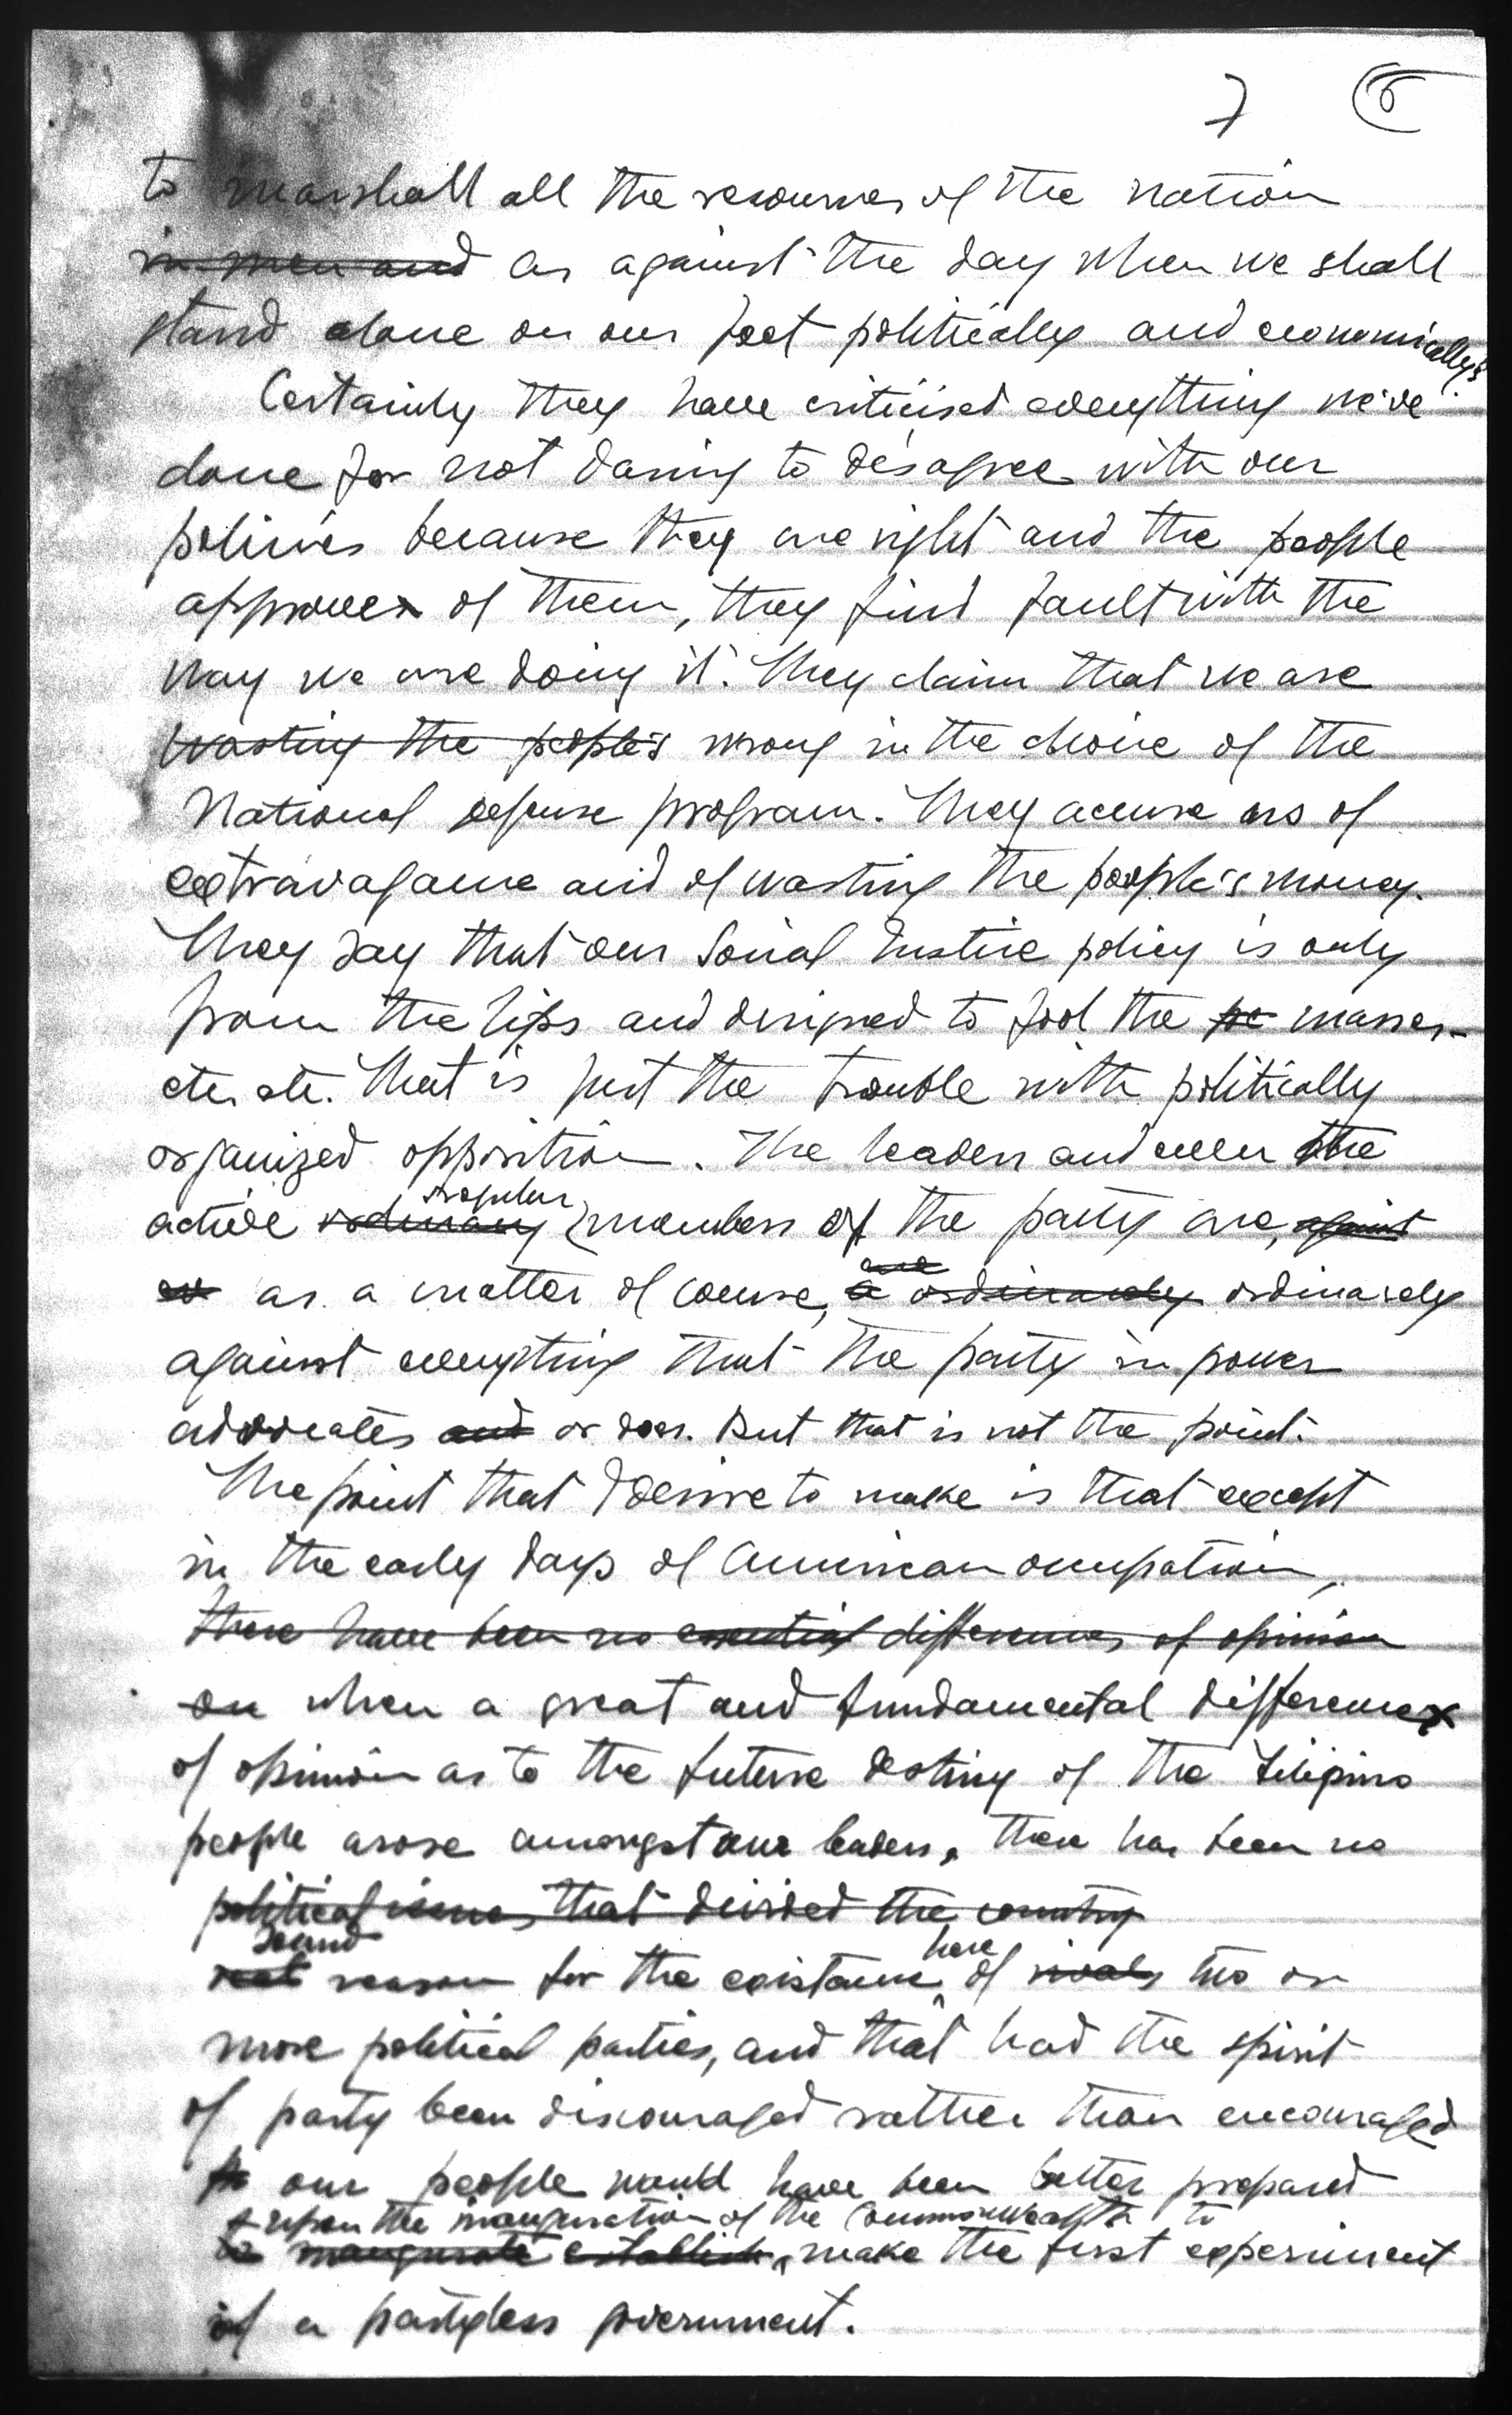 7 6
to marshall all the resources of the nation
in men and as against the day when we shall
stand alone on our feet politically and economically?
Certainly they have criticised everything we've
done for not daring to disagree with our
policies because they are right and the people
approve of them, they find fault with the
way we are doing it. They claim that we are
wasting the people's wrong in the choice of the
National defense program. They accuse us of
extravagance and of wasting the people's money.
They say that our Social Justice policy is only
from the lips and designed to fool the pe masses-
etc. etc. That is just the trouble with politically
organized opposition. The leaders and even the
regular
active ordinary members of the party are, against
are
as a matter of course, a ordinarely ordinarely
against everything that the party in power
advocates and or does. But that is not the point.
The point that I desire to make is that except
in the early days of American occupation,
there have been no essential differences of opinion
on when a great and fundamental difference
of opinion as to the future destiny of the Filipino
people arose amongst our leaders, there has been no
political issues that divided the country
sound here
real reason for the existence of rivals two or
more political parties, and that had the spirit
of party been discouraged rather than encouraged
our people would have been better prepared
upon the inauguration of the Commonwealth to
to inaugurate establish make the first experiment
of a partyless government.